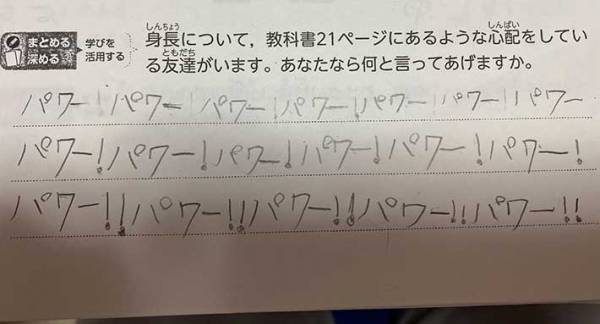 しんちょう しんぱい
まとめる 学びを 身長について，教科書21ページにあるような心配をしてい
深める 活用する ともだち
る友達がいます。あなたなら何と言ってあげますか。
パワー!パワー!パワー!パワー!パワー!パワー!パワー
パワー!パワー!パワー!パワー!パワー!パワー!
パワー!!パワー!!パワー!!パワー!!パワー!!